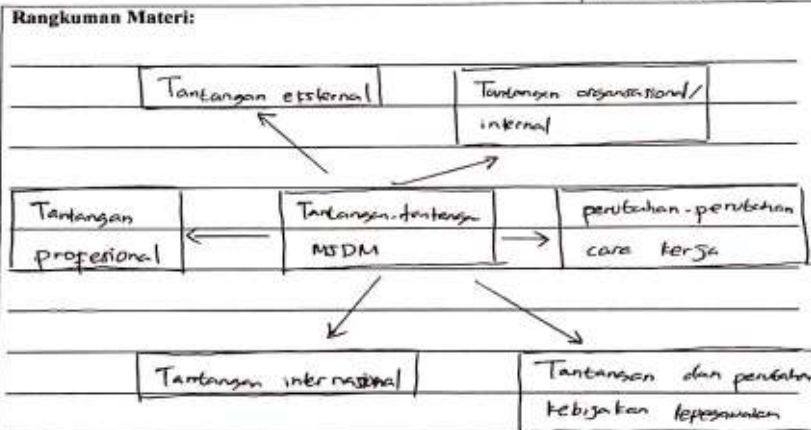 Rangkuman Materi:
Tantangan eksternal
Tantangan organisasional/
internal
Tantangan
profesional
Tantangan-tantangan
MSDM
perubahan-perubahan
cara kerja
Tantangan internasional
Tantangan dan perubahan
kebijakan kepegawaian